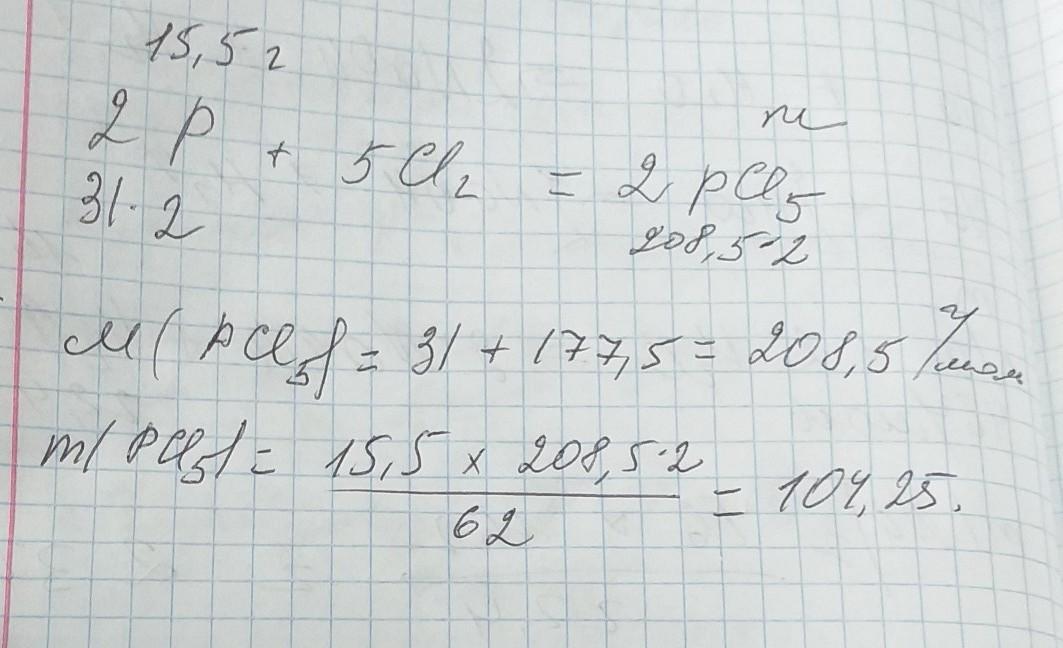 15,5 г
2 P + 5 Cl₂ = 2 PCl₅
m
31·2
208,5·2
M(PCl₅) = 31 + 177,5 = 208,5 г/моль
m(PCl₅) = 15,5 x 208,5·2 / 62 = 104,25.